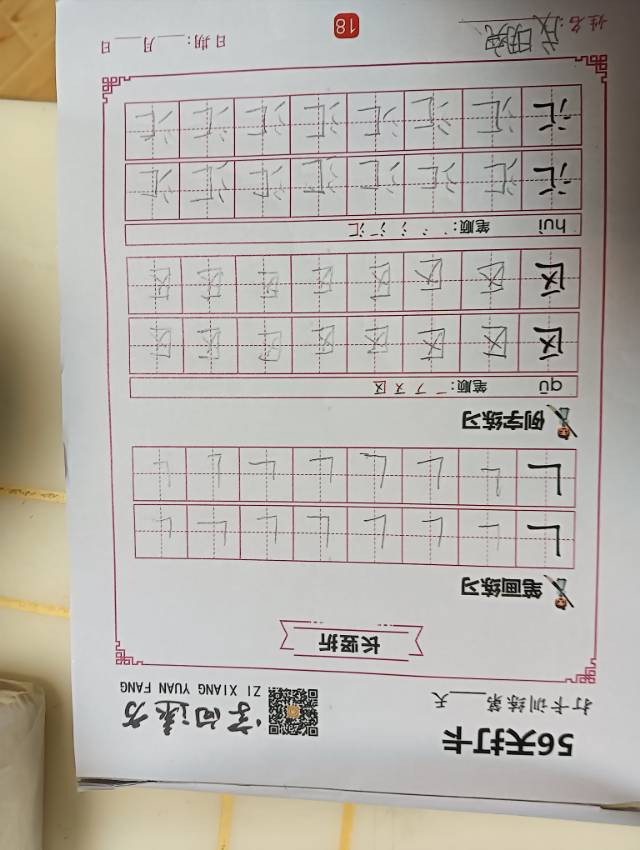 56天打卡
打卡训练第____天
字向速方
ZI XIANG YUAN FANG
长竖折
笔画练习
ㄴ ㄴ ㄴ ㄴ ㄴ ㄴ ㄴ ㄴ
ㄴ ㄴ ㄴ ㄴ ㄴ ㄴ ㄴ ㄴ
例字练习
qū 笔顺: 一 フ 又 区
区 区 区 区 区 区 区 区
区 区 区 区 区 区 区 区
huì 笔顺: 丶 冫 氵 汇
汇 汇 汇 汇 汇 汇 汇 汇
汇 汇 汇 汇 汇 汇 汇 汇
姓名:
18
日期:____月____日